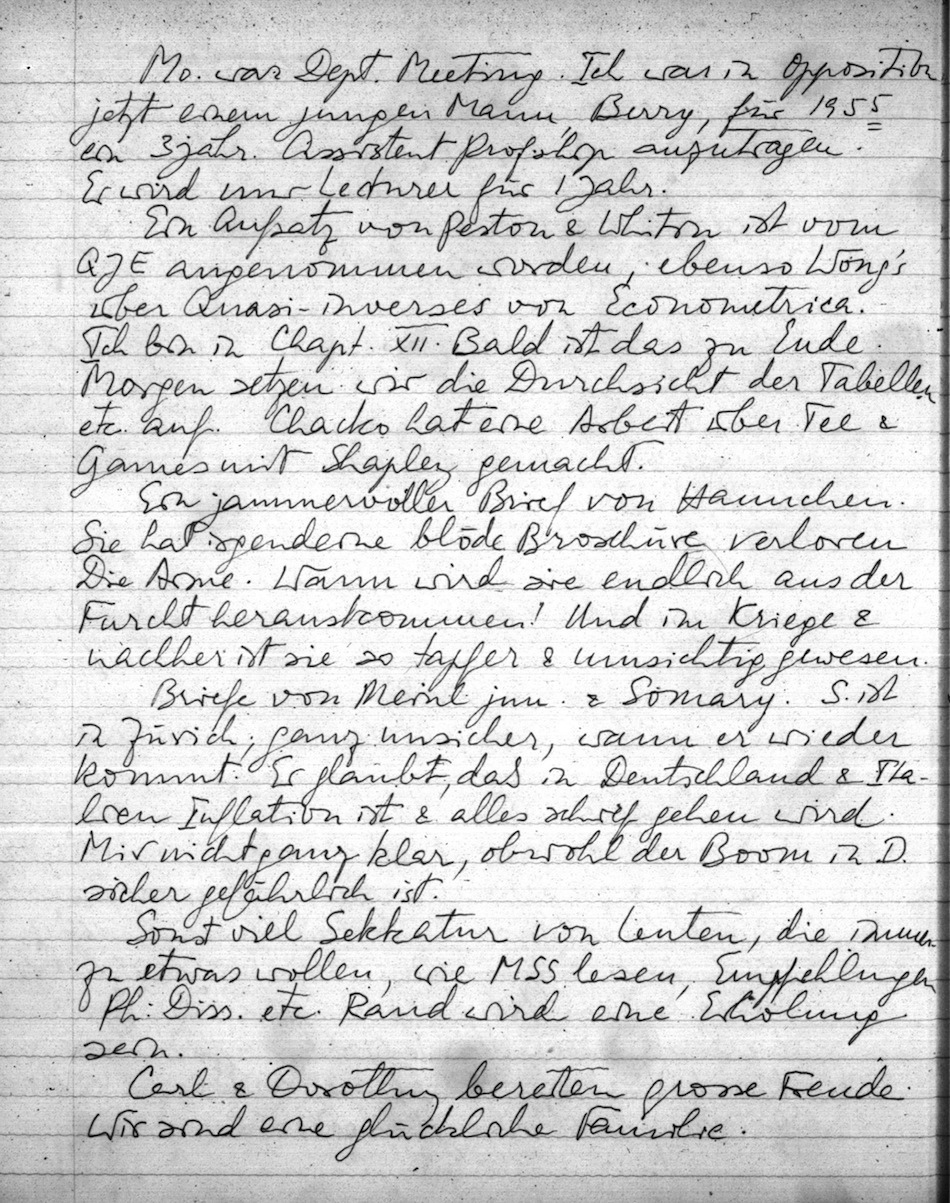 Mo. war Dept. Meeting. Ich war in Opposition
jetzt einem jungen Mann, Berry, für 1955
ein 3jähr. Assistent Profship anzutragen.
Er wird nur Lecturer für 1 Jahr.
Ein Aufsatz von Peston & Whitin ist vom
QJE angenommen worden, ebenso Wong's
über Quasi-inverses von Econometrica.
Ich bin in Chapt. XII. Bald ist das zu Ende.
Morgen setzen wir die Durchsicht der Tabellen
etc. auf. Chacko hat eine Arbeit über Tee &
Games mit Shapley gemacht.
Ein jammervoller Brief von Hannchen.
Sie hat irgendeine blöde Broschüre verloren
Die Arme. Wann wird sie endlich aus der
Furcht herauskommen! Und im Kriege &
nachher ist sie so tapfer & umsichtig gewesen.
Briefe von Meinl jun. & Somary. S. ist
in Zürich, ganz unsicher, wann er wieder
kommt. Er glaubt, daß in Deutschland & Ita-
lien Inflation ist & alles schief gehen wird.
Mir nicht ganz klar, obwohl der Boom in D.
sicher gefährlich ist.
Sonst viel Sekkatur von Leuten, die immer
zu etwas wollen, wie MSS lesen, Empfehlungen
Ph. Diss. etc. Rand wird eine Erholung
sein.
Carl & Dorothy bereiten grosse Freude.
Wir sind eine glückliche Familie.